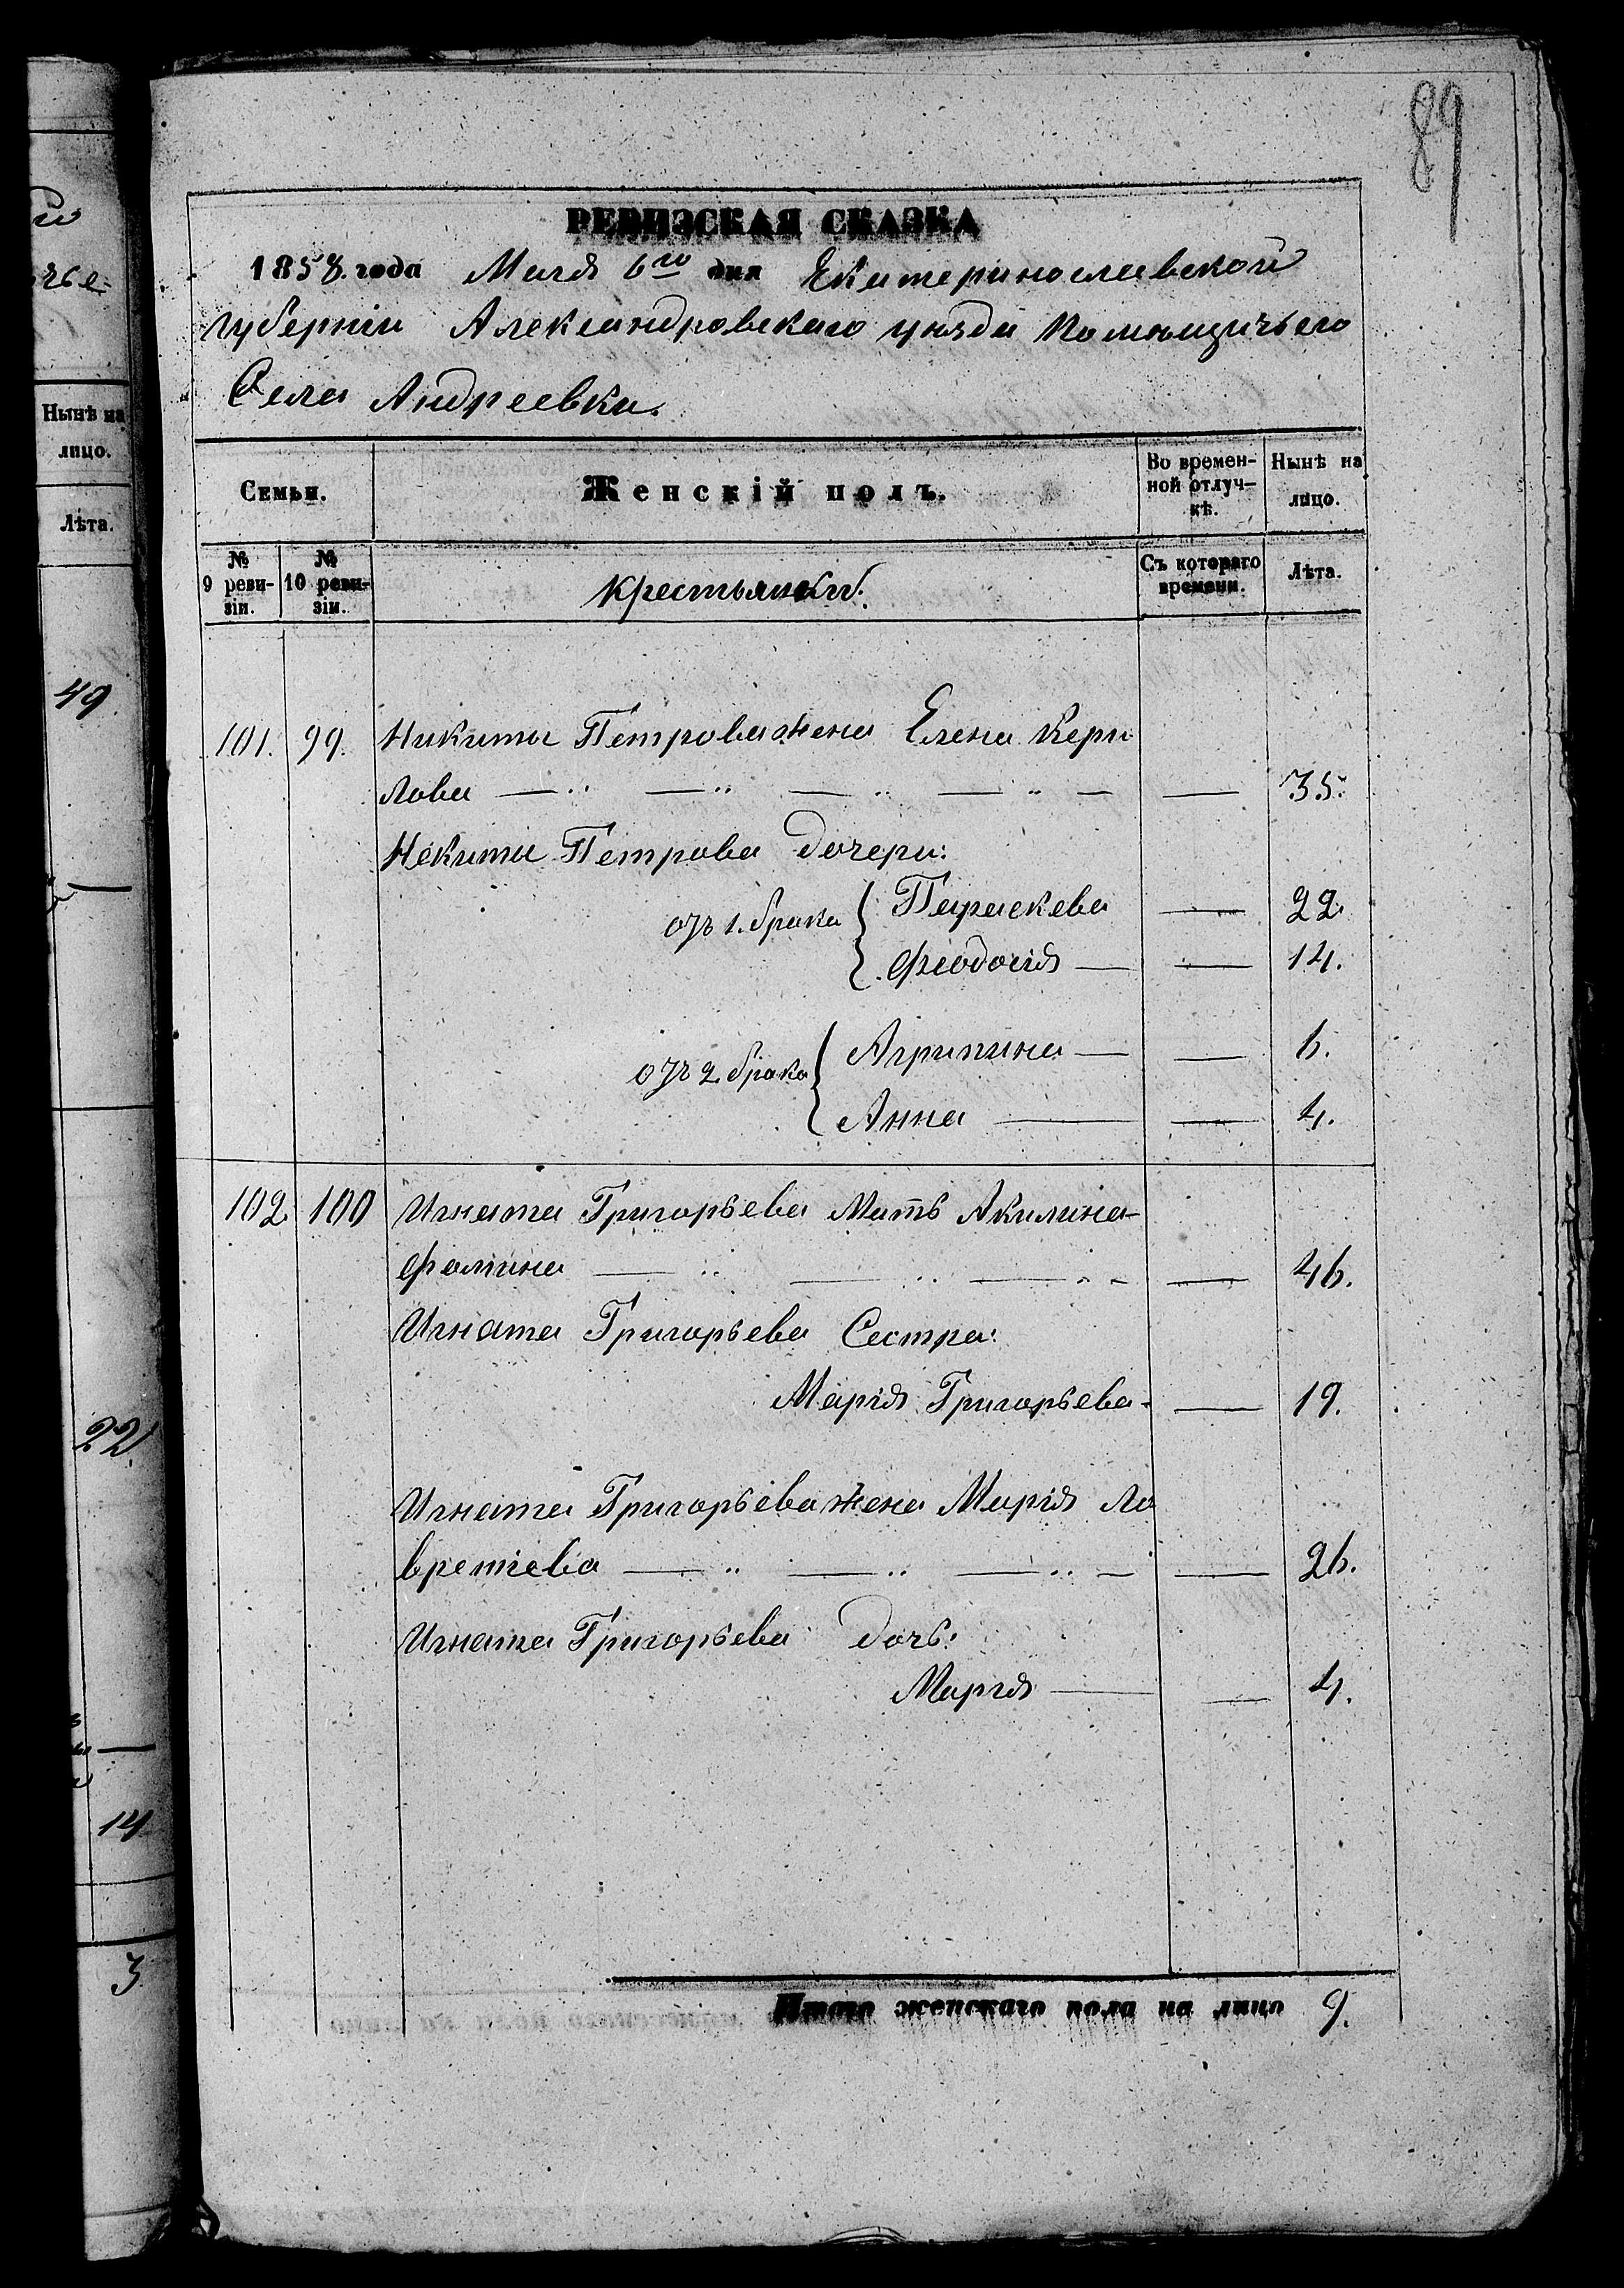 89
РЕВИЗСКАЯ СКАЗКА
1858. года Маія 6го дня Екатеринославской
Губерніи Александровскаго уѣзда Помѣщичьего
Села Андреевки.
Семьи.
Женскій полъ.
Во времен-
ной отлуч-
кѣ.
Нынѣ на
лицо.
№
9 реви-
зіи.
№
10 реви-
зіи.
Крестьянки.
Съ котораго
времени.
Лѣта.
101. 99. Никиты Петрова жена Елена Кери
лова — 35.
Некиты Петрова дочери:
отъ 1. брака { Параскева — 22.
Феодосія — — 14.
отъ 2. брака { Агрипина — — 6.
Анна — — 4.
102 100 Игната Григорьева Мать Акилина
Фомина — 46.
Игната Григорьева Сестра:
Марія Григорьева — 19.
Игната Григорьева жена Марія Ла
врентіева — 26.
Игната Григорьева дочь:
Марія — — 4.
Итого женскаго пола на лицо 9.
Нынѣ на
лицо.
Лѣта.
49
22
14
3